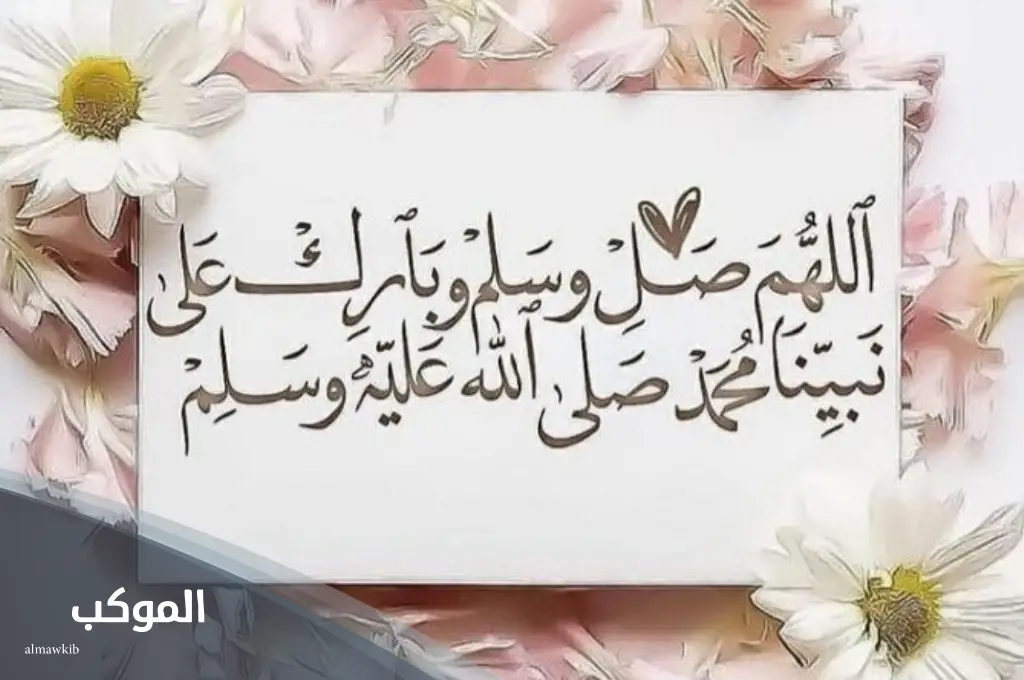 ٱللهُمَّ صَلِّ وسَلِمْ وبَٱرِكْ عَلىٰ
نَبيِّنَا مُحمَدْ صَلىٰ ٱلله عَليّهِ وسَلِمْ
الموكب
almawkib